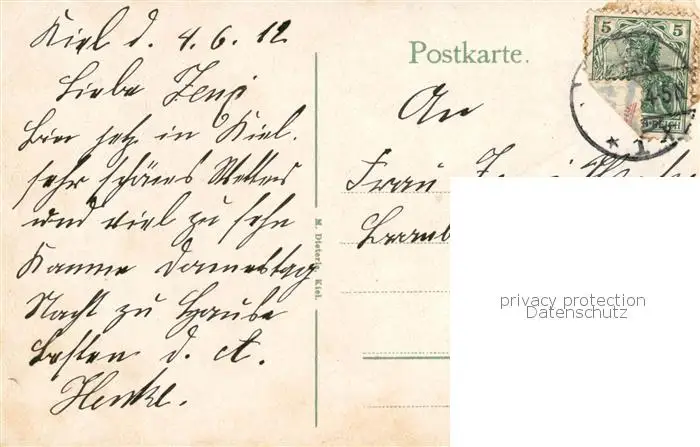 Kiel d. 4.6.12
Liebe Zenzi
Bin jetz in Kiel.
sehr schönes Wetter
und viel zu sehn
Komme Donnestag
Nacht zu Hause
Besten d. A.
Henkel.
Postkarte.
An
Frau
M. Dieterich, Kiel.
5 5
1
privacy protection
Datenschutz